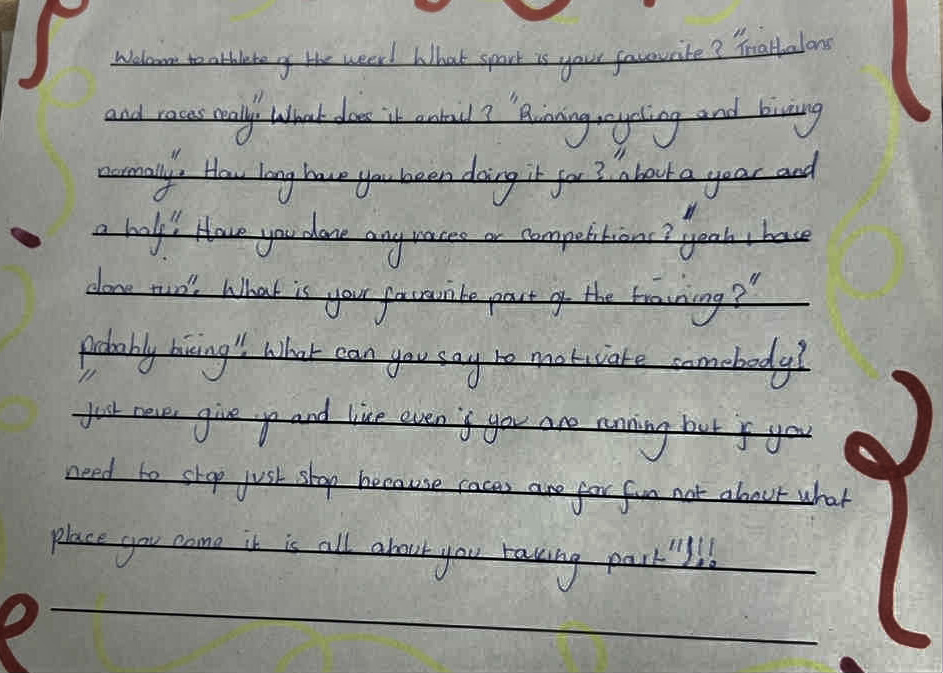 Welcome to athlete of the week! What sport is your favourite? "Triathalons
and races really". What does it entail? "Running, cycling and biking
normally". How long have you been doing it for? "about a year and
a half". Have you done any races or competitions? "yeah i have
done run". What is your favourite part of the training? "
probably biking". What can you say to motivate somebody?
"just never give up and like even if you are running but if you
need to stop just stop because races are for fun not about what
place you come it is all about you taking part"!!!